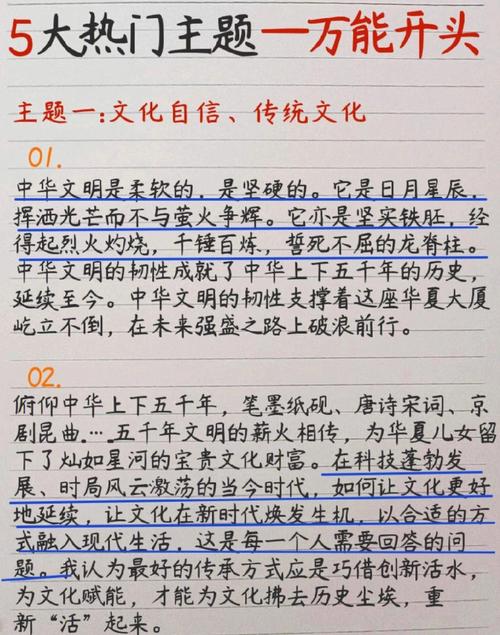 5大热门主题—万能开头
主题一:文化自信、传统文化
01.
中华文明是柔软的，是坚硬的。它是日月星辰，
挥洒光芒而不与萤火争辉。它亦是坚实铁胚，经
得起烈火灼烧，千锤百炼，誓死不屈的龙脊柱。
中华文明的韧性成就了中华上下五千年的历史，
延续至今。中华文明的韧性支撑着这座华夏大厦
屹立不倒，在未来强盛之路上破浪前行。
02.
俯仰中华上下五千年，笔墨纸砚、唐诗宋词、京
剧昆曲……五千年文明的薪火相传，为华夏儿女留
下了灿如星河的宝贵文化财富。在科技蓬勃发
展、时局风云激荡的当今时代，如何让文化更好
地延续，让文化在新时代焕发生机，以合适的方
式融入现代生活，这是每一个人需要回答的问
题。我认为最好的传承方式应是巧借创新活水，
为文化赋能，才能为文化拂去历史尘埃，重
新“活”起来。